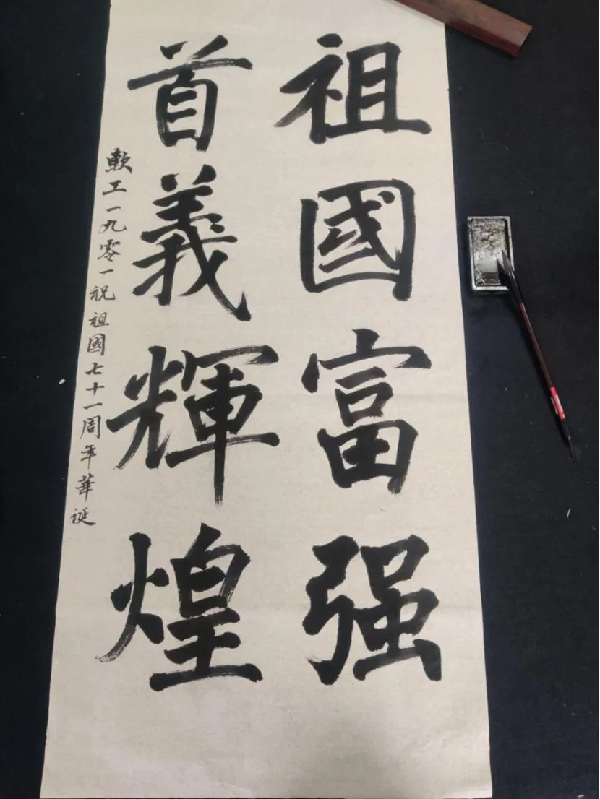 祖國富强
首義輝煌
軟工一九零一祝祖國七十一周年華誕